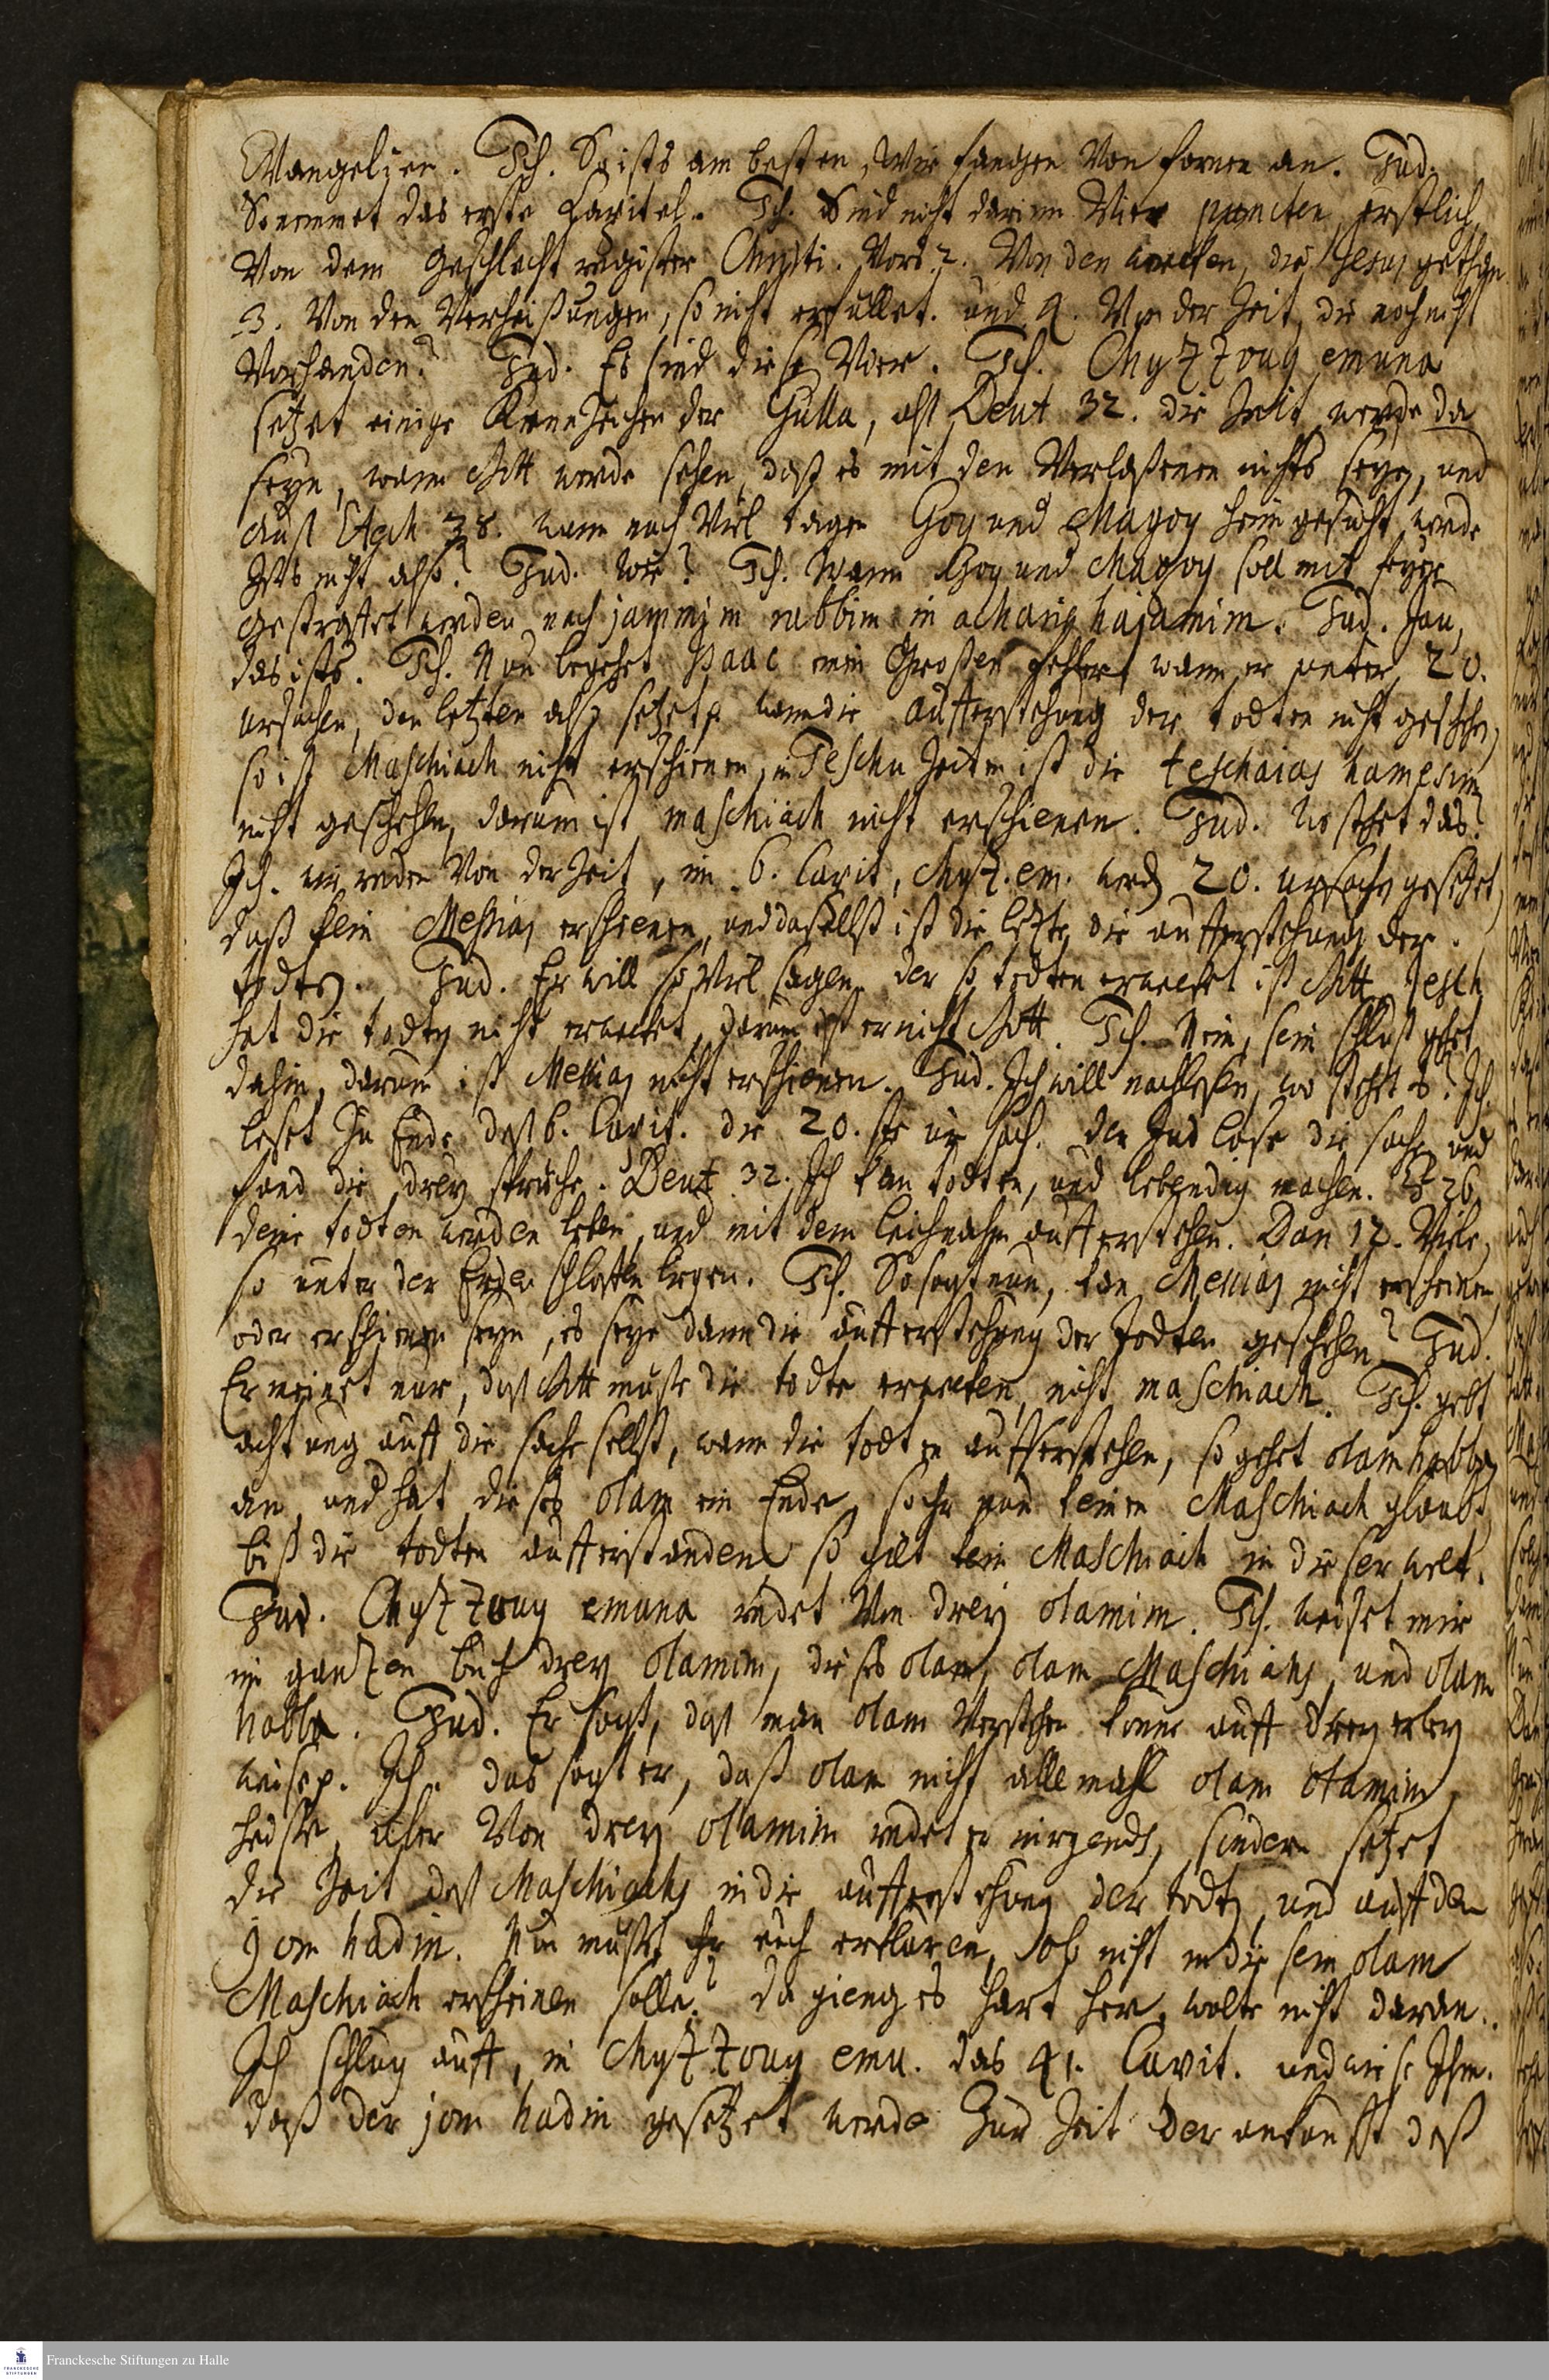 Evangelien. Ich. So ists am besten, Wir fangen Von fornen an. Jud.
So nemmet das erste Capitel. Ich. Sind nicht darinn Vier puncten, erstlich,
Von dem Geschlecht register Christi. Vors 2. Von den wercken, die Jesus gethan
3. Von den Verheißungen, so nicht erfüllet. und 4. Von der Zeit, die noch nicht
Vorhanden? Jud. Es sind diese Vier. Ich. Chyzzouq emuna
setzet einige Kennzeichen der Gulla, alß Deut 32. die Zeit werde da
seyn, wann Gott werde sehen, daß es mit den Verlaßenen nichts seye, und
auß Ezech 38. wann nach Viel tagen Gog und Magog heimgesucht werde
Ists nicht also? Jud. wie? Ich. Wann Gog und Magog soll mit feyer
gestrafet werden nach jammim rabbim in acharis hajamim. Jud. Jau,
das ists. Ich. Nun begehet Isaac einen Großen fehler, wann er unter 20.
ursachen, den letzten also setzet, wann die aufferstehung der todten nicht geschehen,
so ist Maschiach nicht erschienen, in Jeschu Zeiten ist die teschaias hamesim
nicht geschehen, darum ist maschiach nicht erschienen. Jud. wo stehet das?
Ich. wir reden Von der Zeit, im 6. Capit, Chyz. em. werden 20. ursachen gesetzet,
daß kein Messias erschienen, und daselbst ist die letzte, die aufferstehung der
todten. Jud. Er will so Viel sagen, der so todten erwecket ist Gott, Jesch
hat die todten nicht erwecket, darum ist er nicht Gott. Ich. Nein, sein schluß gehet
dahin, darum ist Messias nicht erschienen. Jud. Ich will nachlesen, wo stehet es? Ich.
leset Zu Ende deß 6. Capit. die 20.ste ursach. der Jud lase die sache und
fand die drey sprüche. Deut 32. Ich kan todten, und lebendig machen. Es 26
deine todten werden leben, und mit dem leichnahm aufferstehen. Dan 12. Viele,
so unter der Erden schlaffen liegen. Ich. So sagt nun, kan Messias nicht erscheinen,
oder erschienen seyn, es seye dann die aufferstehung der Todten geschehen? Jud.
Er meinet nur, daß Gott muste die todte erwecken, nicht maschiach. Ich. gebt
achtung auff die sache selbst, wann die todten aufferstehen, so gehet olam habba
an, und hat dieses olam ein Ende, so ihr nun keinen Maschiach glaubt,
biß die todten aufferstanden, so gilt kein Maschiach in dieser welt.
Jud. Chyzzouq emuna redet Von drey olamim. Ich. weiset mir
im gantzen buch drey olamim, dieses olam, olam Maschiachs, und olam
habba. Jud. Er sagt, daß man olam Verstehen könne auff dreyerley
weise. Ich. das sagt er, daß olam nicht allemahl olam olamim
heiße, aber Von drey olamim redet er nirgends, sondern setzet
die Zeit deß Maschiachs in die aufferstehung der todten, und auff den
jom hadin. Nun müßet ihr euch erklären, ob nicht in diesem olam
Maschiach erscheinen solle? da gieng es hart her, wolte nicht daran.
Ich schlug auff, in Chyzzouq emu. das 41. Capit. und wiese Ihm.
daß der jom hadin gesetzet werde Zur Zeit der ankunfft deß
Franckesche Stiftungen zu Halle